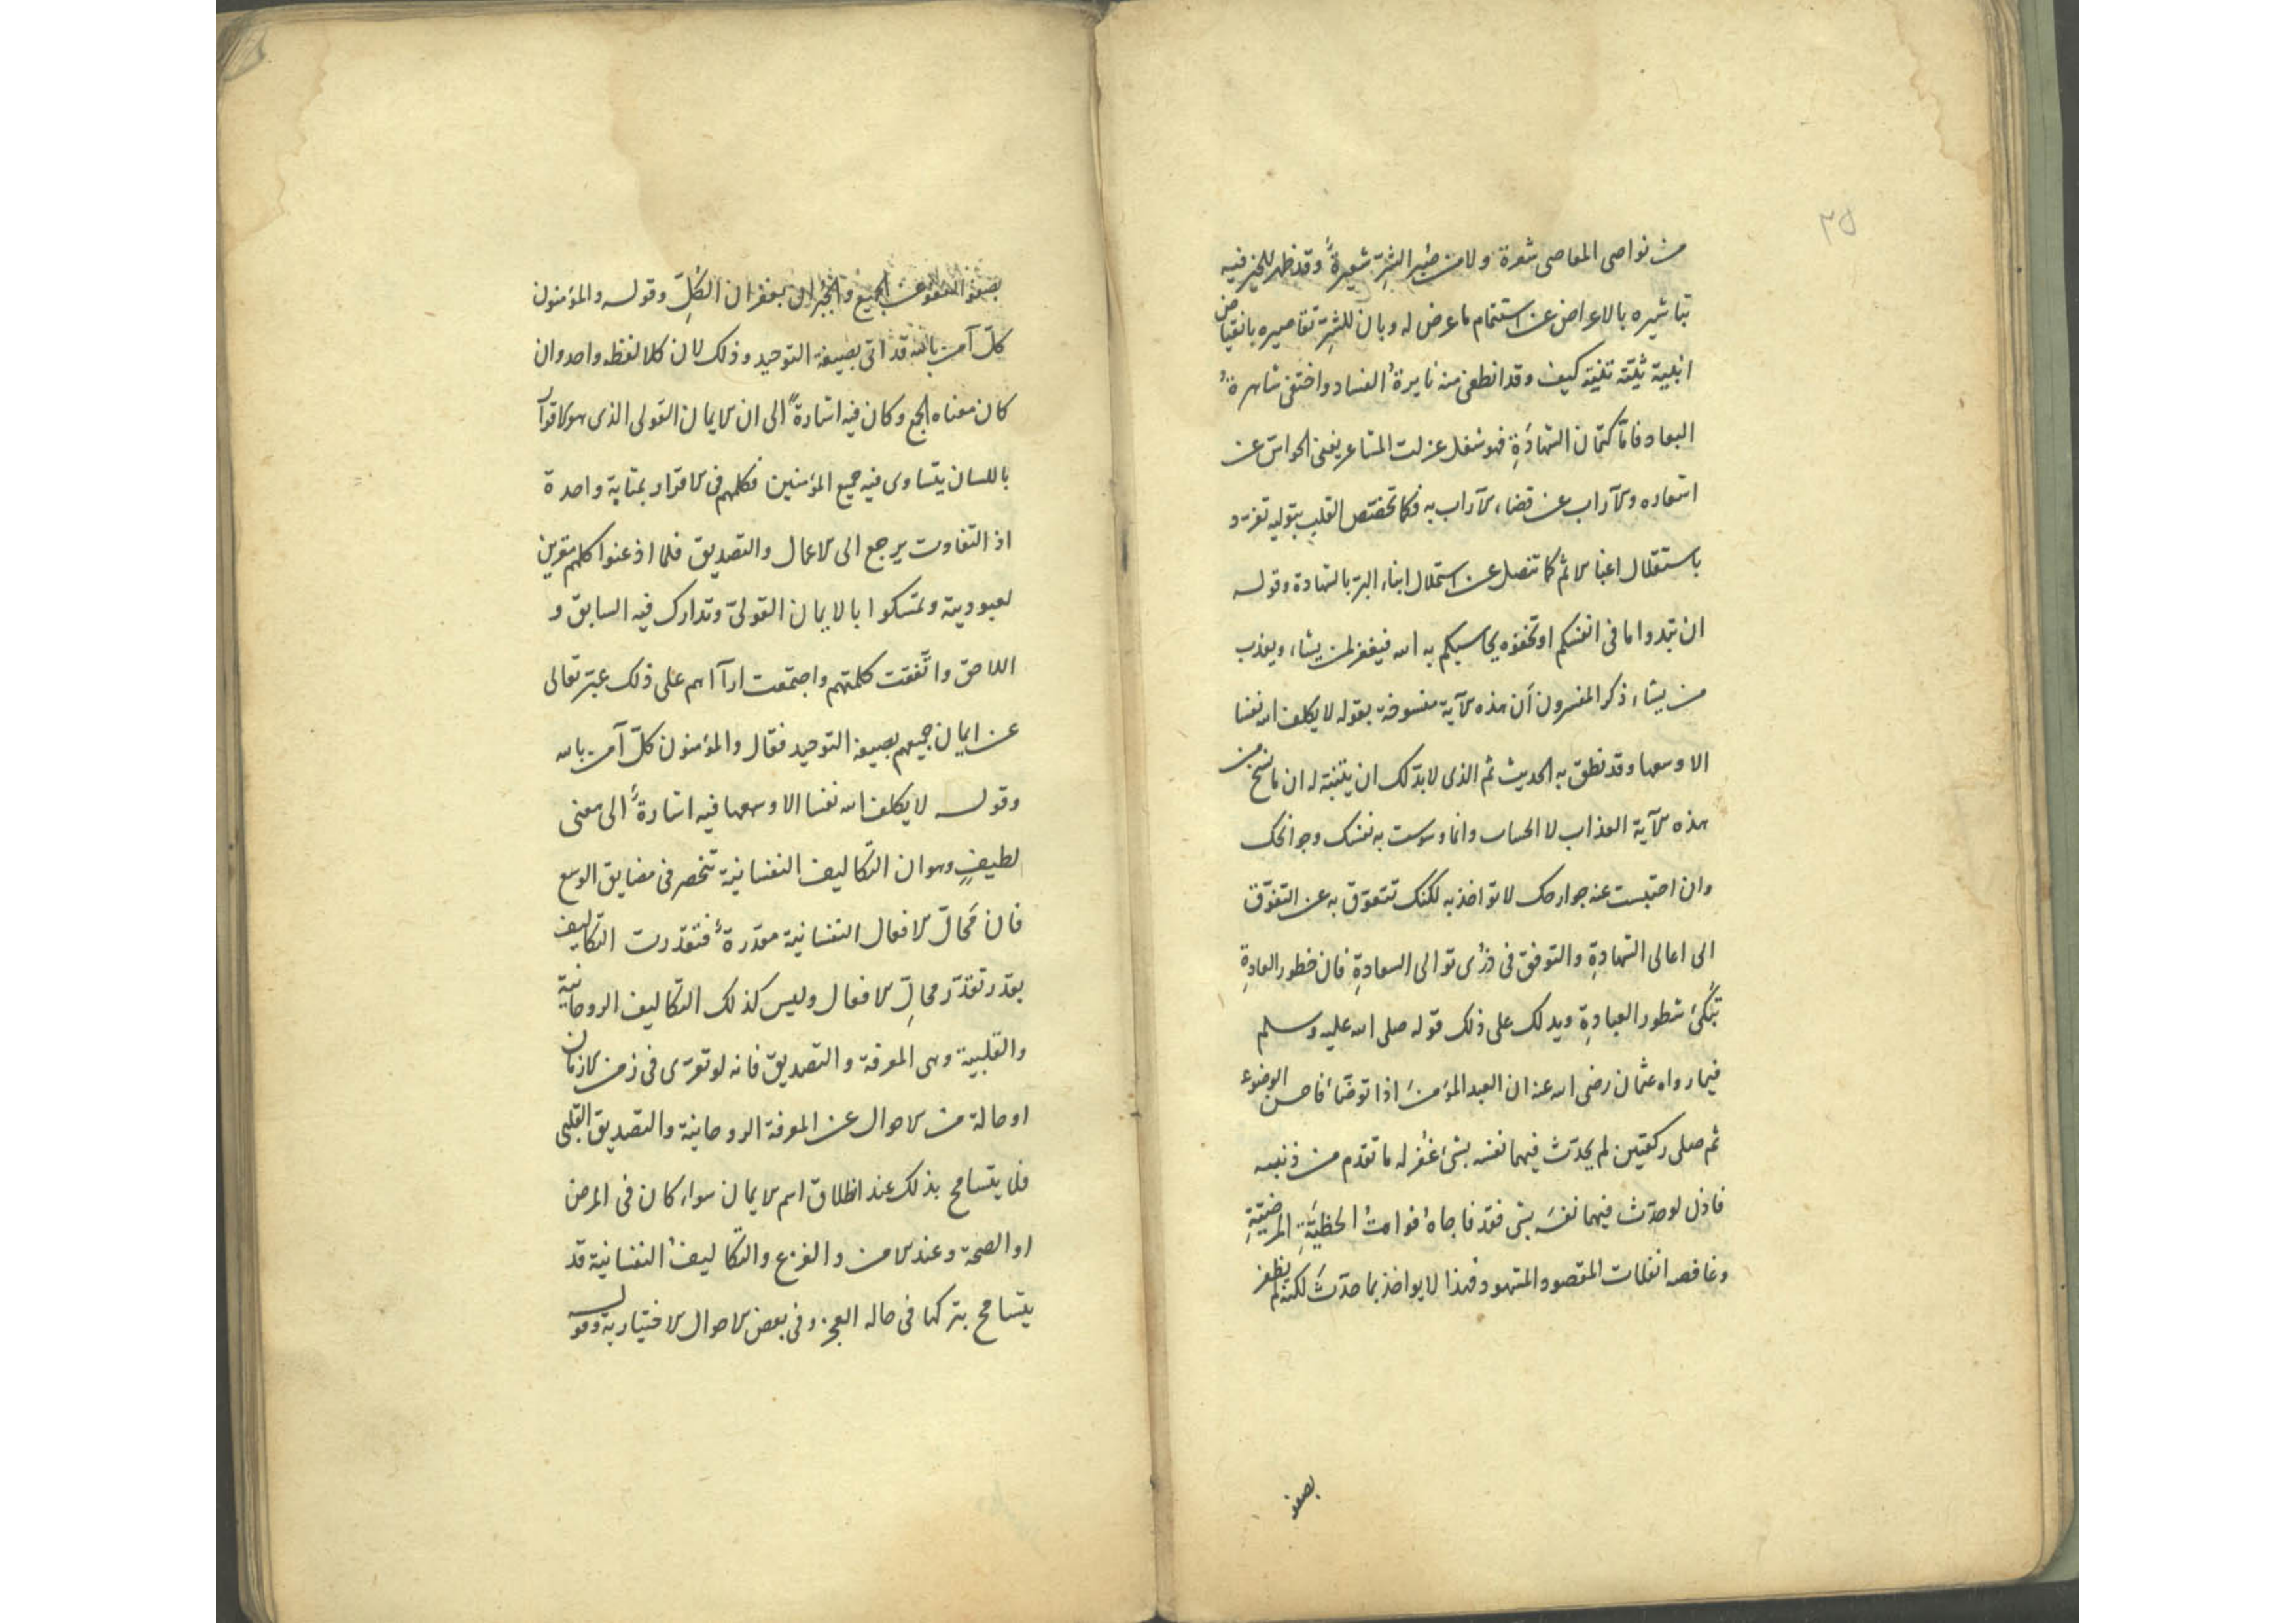 ٣٥
من نواصى المعاصى شعرة ولا من ضير الشر شعيرةً وقد ظهر للخير فيه
تباشيره بالاعراض عن استتمام ما عرض له وبان للشر تقاصيره بانقباض
كيف وقد انطفى منه نايرةُ الفساد واختفى
البعاد فاما كتمان الشهادةِ فهو شغل عزلت المشاعر يعنى الحواس عن
اشعاره والآراب عن قضاء الآراب به فكما تختص القلب بتوليه تفرد
باستقلال اعباء الاثم كما تنصل عن استملال ابناء البر بالشهادة وقوله
ان تبدوا ما فى انفسكم او تخفوه يحاسبكم به الله فيغفر لمن يشاء ويعذب
من يشاء ذكر المفسرون أن هذه الآية منسوخة بقوله لا يكلف الله نفسا
الا وسعها وقد نطق به الحديث ثم الذى لابد لك ان يتنبه له ان ما نسخ من
هذه الآية العذاب لا الحساب وانما وسوست به نفسك وجوانحك
وان احتبست عنه جوارحك لا تؤاخذ به لكنك تتعوق به عن التفوق
الى اعالى الشهادةِ والتوفق فى ذرى توالى السعادةِ فان خطور العادةِ
شطور العبادةِ ويدلك على ذلك قوله صلى الله عليه وسلم
فيما رواه عثمان رضى الله عنه ان العبد المؤمنَ اذا توضأ فاحسن الوضوء
ثم صلى ركعتين لم يحدث فيهما نفسه بشئ غفر له ما تقدم من ذنبه
فاذن لو حدث فيهما نفسَه بشئ فقد فاجاهُ فواتُ الحظيَّةِ المرضيةِ
وغافصه انفلات المقصود المشهود فهذا لا يواخذ بما حدثَ لكنه لم يظفر
بصفو
بصفو العفو عن الجميع والجبران بغفران الكُلِّ وقوله والمؤمنون
كلّ آمن بالله قد اتى بصيغة التوحيد وذلك لان كلا لفظه واحد وان
كان معناه الجمع وكان فيه اشارةً الى ان الايمان القولى الذى هو الاقرار
باللسان يتساوى فيه جميع المؤمنين فكلهم فى الاقرار بمثابة واحدة
اذ التفاوت يرجع الى الاعمال والتصديق فلما اذعنوا كلهم مقرين
لعبوديته وتمسكوا بالايمان القولىّ وتدارك فيه السابق و
اللاحق واتّفقت كلمتهم واجتمعت ارآاهم على ذلك عبّر تعالى
عن ايمان جميعهم بصيغة التوحيد فقال والمؤمنون كلّ آمن بالله
وقوله لا يكلف الله نفسا الا وسعها فيه اشارةً الى معنى
لطيفٍ وهو ان التكاليف النفسانية تنحصر فى مضايق الوسع
فان مَحالّ الافعال النفسانية مقدرةٌ فتقدرت التكاليف
بقدر تقدّر محالِّ الافعال وليس كذلك التكاليف الروحانية
والقلبية وهى المعرفة والتصديق فانه لو تعرى فى زمن الازمان
او حالة من الاحوال عن المعرفة الروحانية والتصديق القلبى
فلا يتسامح بذلك عند اطلاق اسم الايمان سواء كان فى المرض
او الصحة وعند الامن والفزع والتكاليفُ النفسانية قد
يتسامح بتركها فى حالة العجز وفى بعض الاحوال الاختيارية وقوله